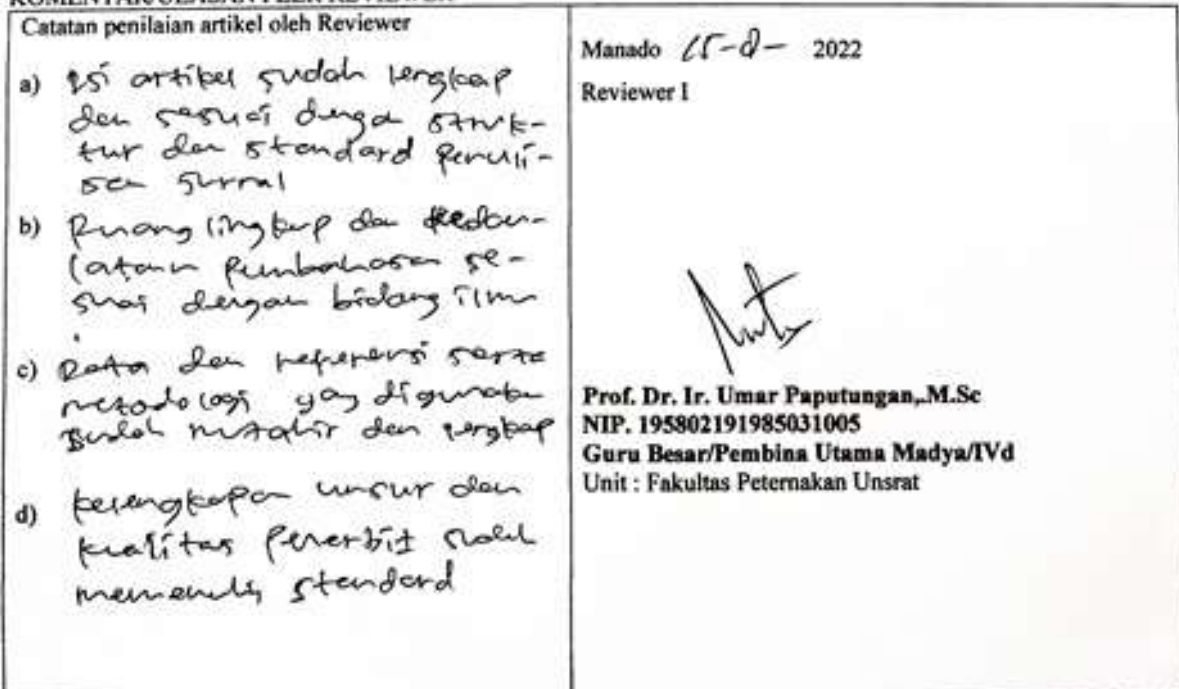 KOMENTAR/ULASAN PEER REVIEWER
Catatan penilaian artikel oleh Reviewer
a) Isi artikel sudah lengkap
dan sesuai dengan struk-
tur dan standard penuli-
san jurnal
b) Ruang lingkup dan kedau-
latan pembahasan se-
suai dengan bidang ilmu
c) Data dan referensi serta
metodologi yang digunakan
sudah mutahir dan lengkap
d) kelengkapan unsur dan
kualitas penerbit sudah
memenuhi standard
Manado 2022
Reviewer I
Prof. Dr. Ir. Umar Paputungan,.M.Sc
NIP. 195802191985031005
Guru Besar/Pembina Utama Madya/IVd
Unit : Fakultas Peternakan Unsrat